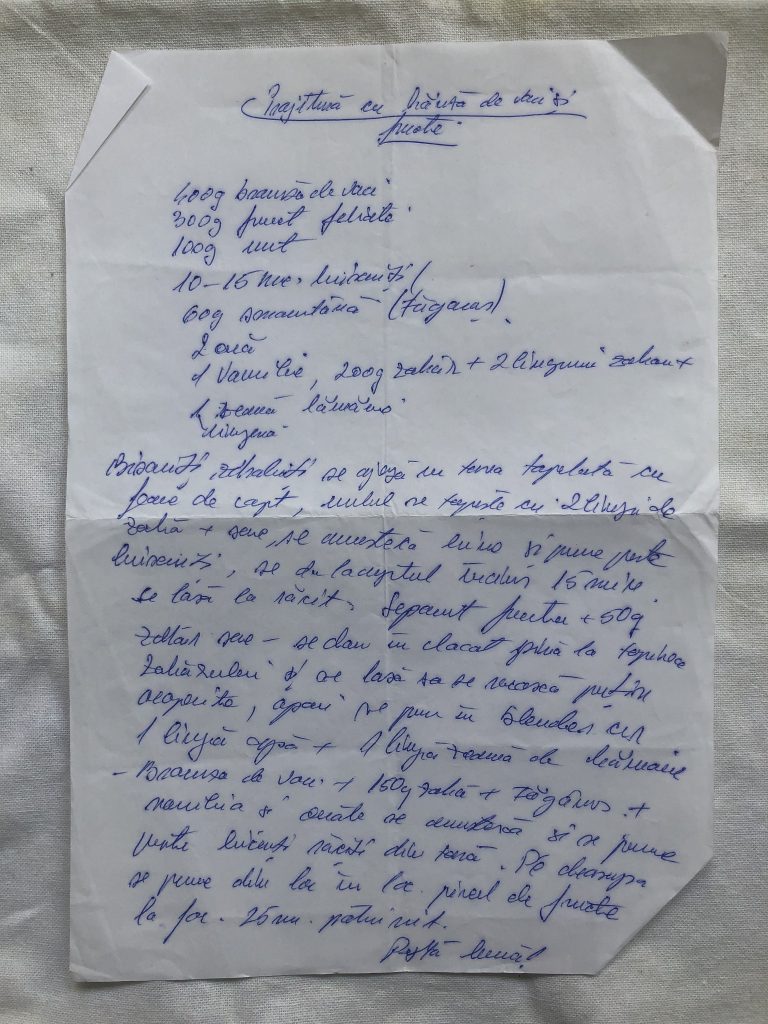 Prajitură cu brânză de vaci și
fructe
400g branză de vaci
300g fruct feliate
100g unt
10-15 buc. biscuiți /
60g smantână (Făgăraș)
2 ouă
1 Vanilie, 200g zahăr + 2 linguri zahar +
1 zeamă lămâie
Biscuiți se așază în tava tapetată cu
foaie de copt, untul se topește cu 2 linguri de
zahăr + sare, se amestecă bine și pune peste
biscuiți, se dă la cuptorul încins 15 min
se lasă la răcit. Separat fructe + 50g
zahăr sare - se dau în clocot până la topirea
zahărului și se lasă sa se răcească puțin
acoperite, apoi se pun în blender cu
1 lingură apă + 1 lingură zeamă de lămâie
- Branza de vaci + 150g zahăr + Făgăraș +
vanilia și ouăle se amestecă și se pune
peste biscuiți răciți din tavă. Pe deasupra
se pune din loc în loc pireul de fructe
la foc. 25 min. potrivit.
Poftă bună!